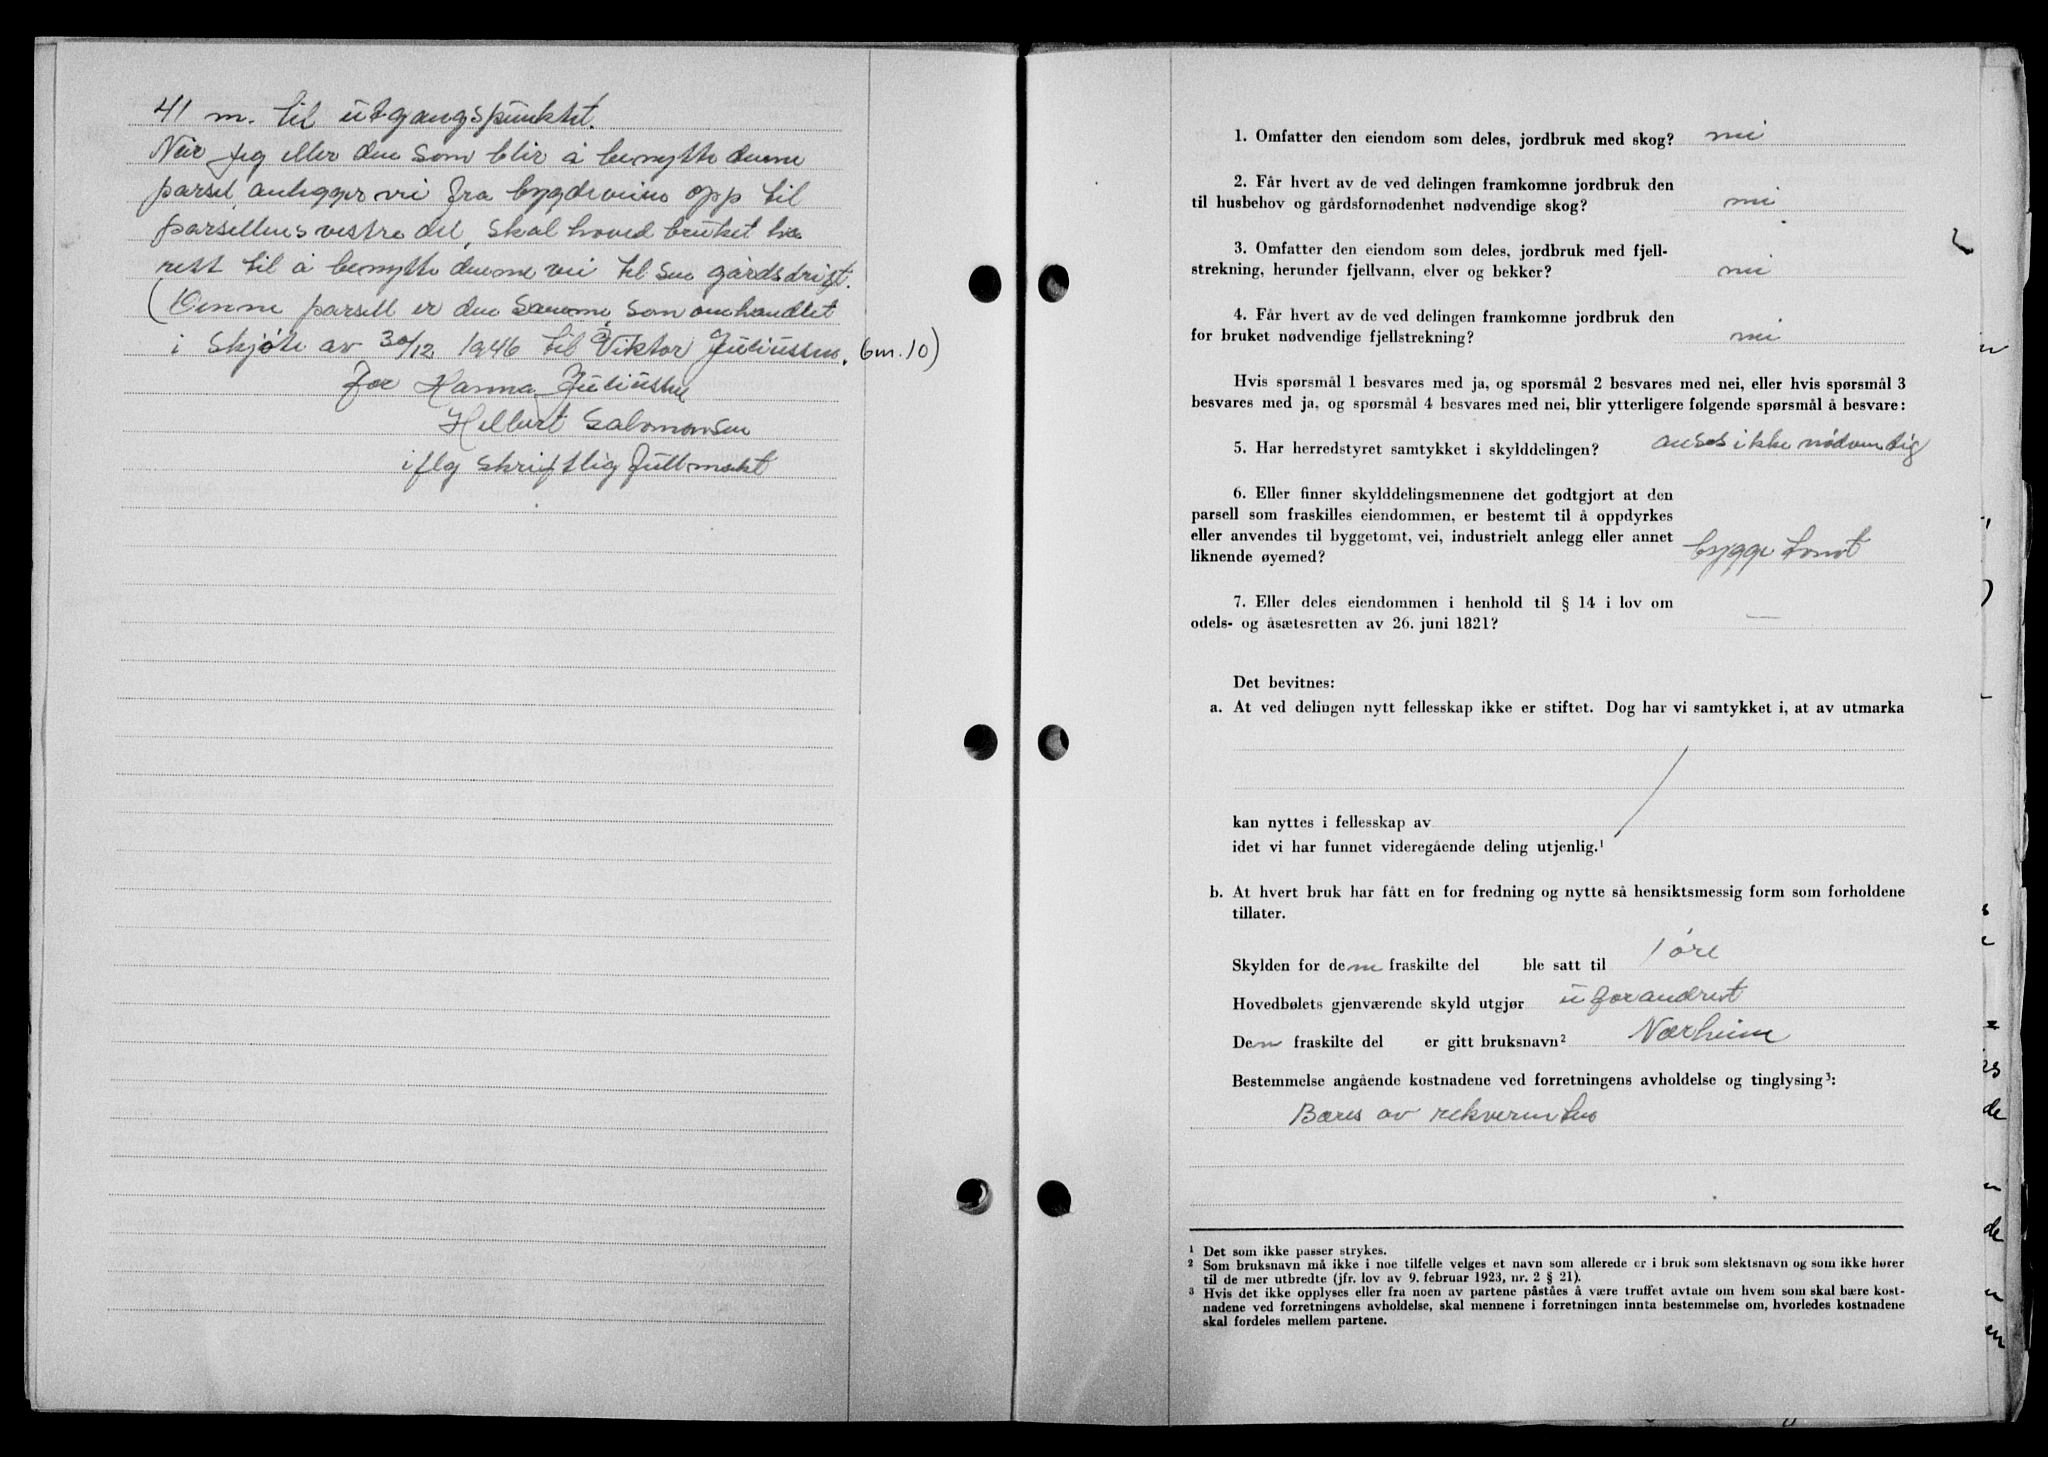 41 m. til utgangspunktet.
Når jeg eller den som blir å benytte denne
parsel, anlegger vei fra bygdeveien opp til
parsellens vestre del, skal hovedbruket ha
rett til å benytte denne vei til sin gårdsdrift.
(Denne parsell er den samme som omhandlet
i skjøte av 30/12 1946 til Viktor Juliussen. (bnr. 10)
for Hanna Juliussen
Hilbert Salomonsen
iflg skriftlig fullmakt
1. Omfatter den eiendom som deles, jordbruk med skog? nei
2. Får hvert av de ved delingen framkomne jordbruk den
til husbehov og gårdsfornødenhet nødvendige skog? nei
3. Omfatter den eiendom som deles, jordbruk med fjell-
strekning, herunder fjellvann, elver og bekker? nei
4. Får hvert av de ved delingen framkomne jordbruk den
for bruket nødvendige fjellstrekning? nei
Hvis spørsmål 1 besvares med ja, og spørsmål 2 besvares med nei, eller hvis spørsmål 3
besvares med ja, og spørsmål 4 besvares med nei, blir ytterligere følgende spørsmål å besvare:
5. Har herredstyret samtykket i skylddelingen? anses ikke nødvendig
6. Eller finner skylddelingsmennene det godtgjort at den
parsell som fraskilles eiendommen, er bestemt til å oppdyrkes
eller anvendes til byggetomt, vei, industrielt anlegg eller annet
liknende øyemed? bygge tomt
7. Eller deles eiendommen i henhold til § 14 i lov om
odels- og åsætesretten av 26. juni 1821? —
Det bevitnes:
a. At ved delingen nytt fellesskap ikke er stiftet. Dog har vi samtykket i, at av utmarka
kan nyttes i fellesskap av
idet vi har funnet videregående deling utjenlig.¹
b. At hvert bruk har fått en for fredning og nytte så hensiktsmessig form som forholdene
tillater.
Skylden for den fraskilte del ble satt til 1 øre
Hovedbølets gjenværende skyld utgjør uforandret
Den fraskilte del er gitt bruksnavn² Nærheim
Bestemmelse angående kostnadene ved forretningens avholdelse og tinglysing³:
Bæres av rekverenten
¹ Det som ikke passer strykes.
² Som bruksnavn må ikke i noe tilfelle velges et navn som allerede er i bruk som slektsnavn og som ikke hører
til de mer utbredte (jfr. lov av 9. februar 1923, nr. 2 § 21).
³ Hvis det ikke opplyses eller fra noen av partene påståes å være truffet avtale om hvem som skal bære kost-
nadene ved forretningens avholdelse, skal mennene i forretningen innta bestemmelse om, hvorledes kostnadene
skal fordeles mellem partene.